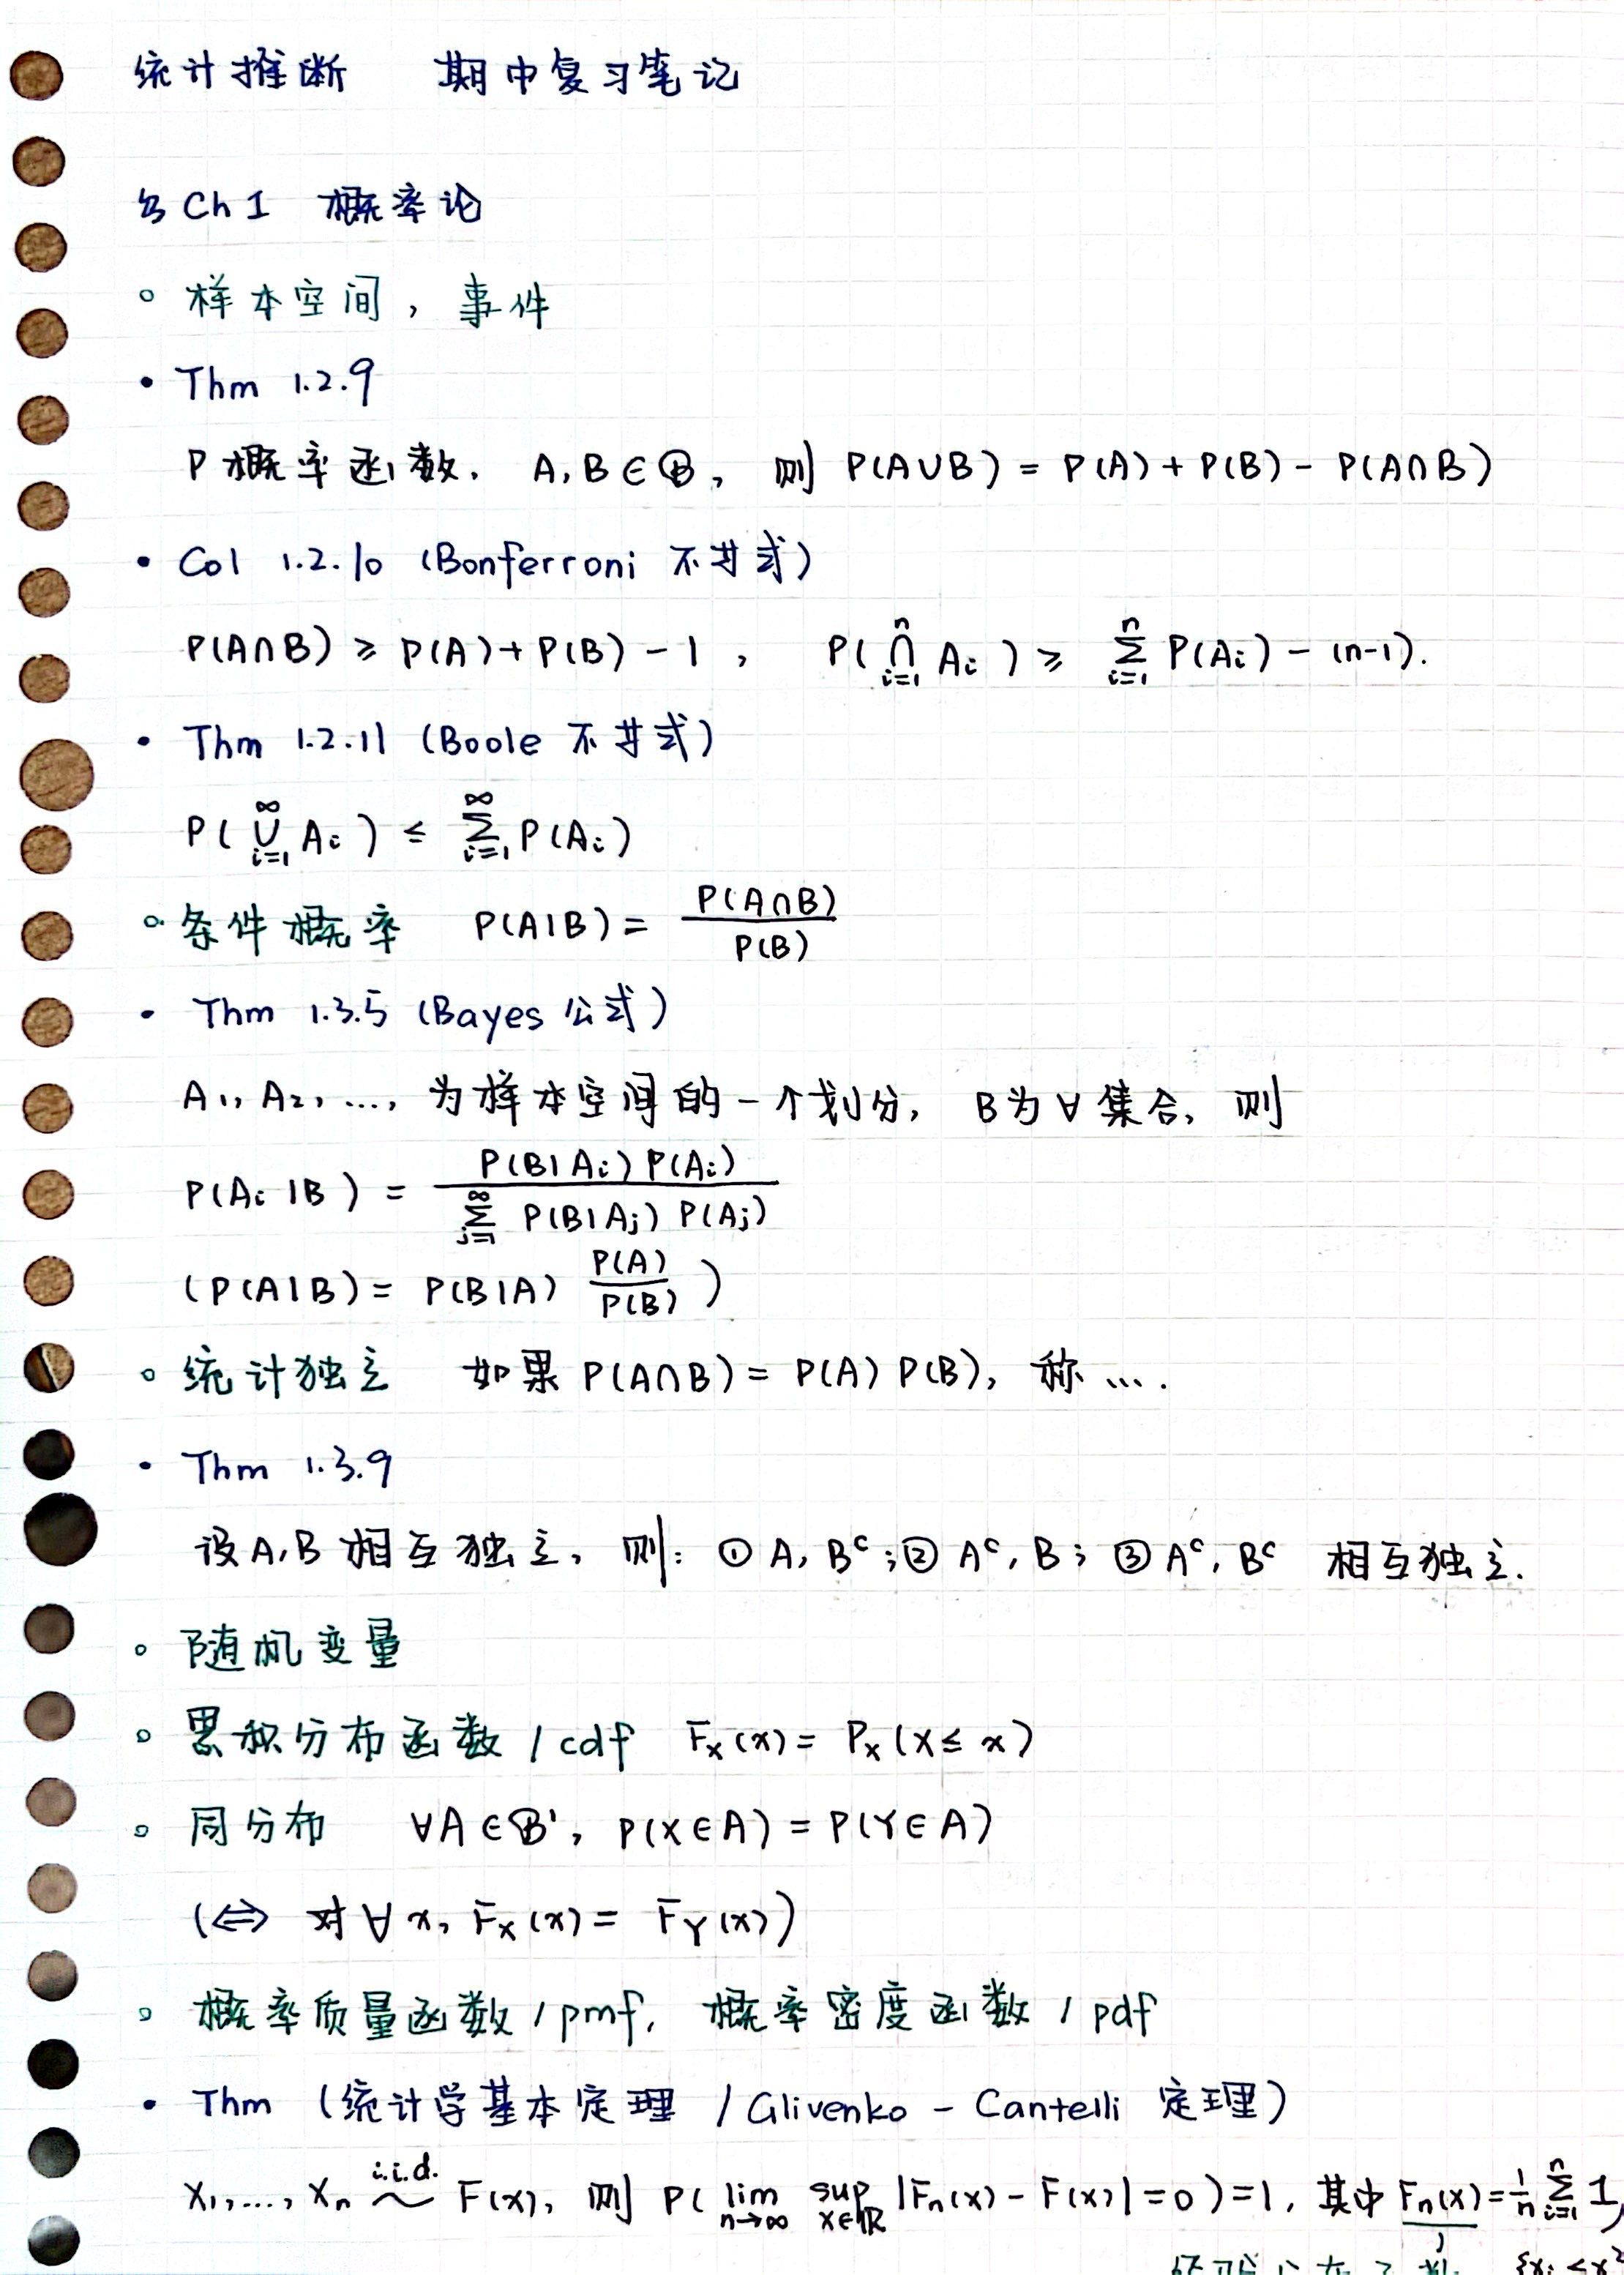 统计推断 期中复习笔记
§ Ch 1 概率论
。样本空间，事件
• Thm 1.2.9
P 概率函数. A, B ∈ 𝓑, 则 P(A∪B) = P(A) + P(B) - P(A∩B)
• Col 1.2.10 (Bonferroni 不等式)
P(A∩B) ≥ P(A) + P(B) - 1 , P( ⋂_{i=1}^{n} A_i ) ≥ Σ_{i=1}^{n} P(A_i) - (n-1).
• Thm 1.2.11 (Boole 不等式)
P( ⋃_{i=1}^{∞} A_i ) ≤ Σ_{i=1}^{∞} P(A_i)
。条件概率 P(A|B) = P(A∩B) / P(B)
• Thm 1.3.5 (Bayes 公式)
A₁, A₂, ..., 为样本空间的一个划分, B为∀集合, 则
P(A_i |B) = P(B|A_i) P(A_i) / Σ_{j=1}^{∞} P(B|A_j) P(A_j)
(P(A|B) = P(B|A) P(A)/P(B) )
。统计独立 如果 P(A∩B) = P(A) P(B), 称 ....
• Thm 1.3.9
设A,B 相互独立, 则: ① A, Bᶜ ; ② Aᶜ, B ; ③ Aᶜ, Bᶜ 相互独立.
。随机变量
。累积分布函数 / cdf F_X(x) = P_X(X ≤ x)
。同分布 ∀A ∈ 𝓑¹, P(X∈A) = P(Y∈A)
(⇔ 对∀x, F_X(x) = F_Y(x))
。概率质量函数 / pmf, 概率密度函数 / pdf
• Thm (统计学基本定理 / Glivenko - Cantelli 定理)
X₁, ..., X_n ~ i.i.d. F(x), 则 P( lim_{n→∞} sup_{x∈ℝ} |F_n(x) - F(x)| = 0 ) = 1, 其中 F_n(x) = 1/n Σ_{i=1}^{n} 1
{x_i ≤ x}